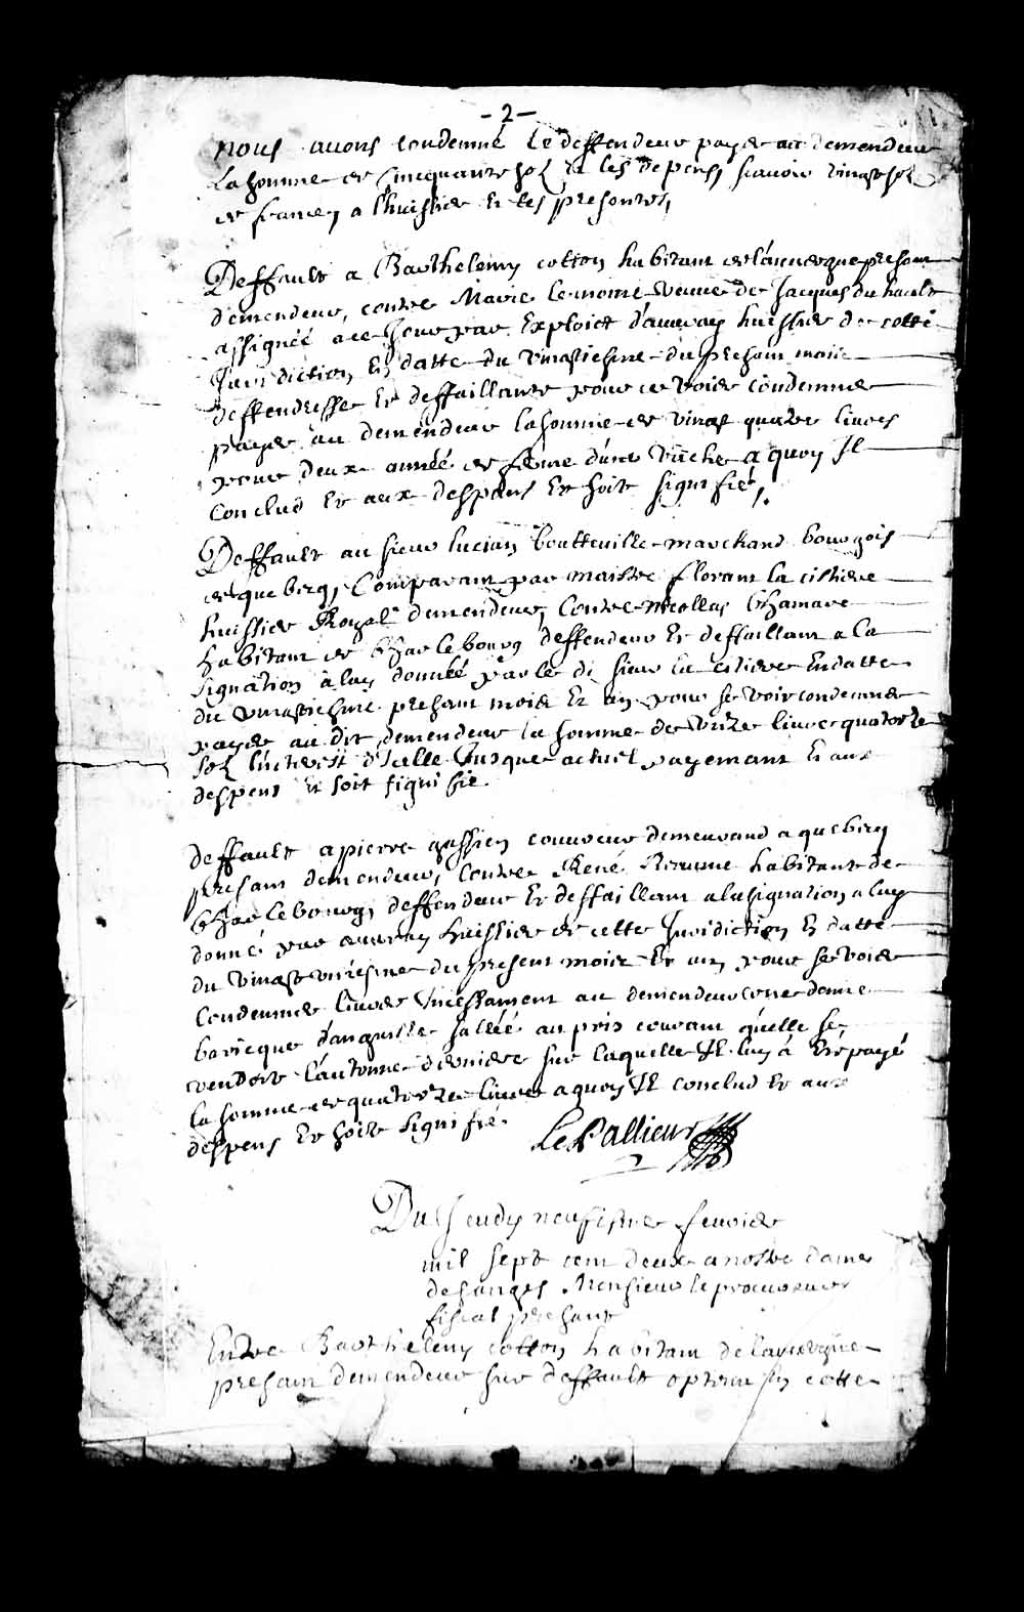 - 2 -
nous avons condemné le deffendeur payer au demendeur
la somme de cincquante solz & les depens, scavoir vingt solz
de france, a l'huissier et les presentes,
Deffault a Barthelemy cotton habitant de l'auvergne present
demendeur, contre Marie lemoine veuve de Jacques du hault
assignée a ce jour par Exploict d'auvray huissier de cette
Jurisdiction En datte du vingtiesme du presant mois
deffendresse Et deffaillante pour ce voir condemner
payer au demendeur la somme de vingt quatre livres
pour deux année de ferme d'une vache a quoy Il
conclud Et aux despens Et soit signifié,.
Deffault au sieur lucian boutteuille marchand bourgois
de quebecq, Comparant par maistre florant la cistiere
huissier Royal demendeur, Contre nicollas
habitant de Charlebourg deffendeur Et deffaillant a la
signation a luy donnéé par le di sieur la cistiere En datte
du vingtiesme presant mois Et an pour se voir condemner
payer au dit demendeur la somme de treize livres quatorze
solz l'interest d'Icelle Jusque actuel payemant Et aux
despens Et soit signifie.
deffault a pierre gassien couvreur demeurand a quebecq
presant demendeur, Contre René Brunne habitant de
Charlebourg, deffendeur Et deffaillant a lasignation a luy
donné par auvray huissier de cette Juridiction En datte
du vingt uniesme du present mois Et an, pour se voir
condemner livrer Incessament au demendeur une demie
baricque d'anguille salléé au pris courant quelle se
vendoit l'autonne derniere sur laquelle Il luy á Eté payé
la somme de quatorze livres a quoy Il conclud Et aux
despens Et soit signifié.
LePallieur
Du Jeudy neufiesme fevrier
mil sept cent deux a nostre dame
des anges Monsieur le procureur
fiscal presant
Entre Barthelemy cotton habitant de lauvergne
presant demendeur sur deffault optenu En cette